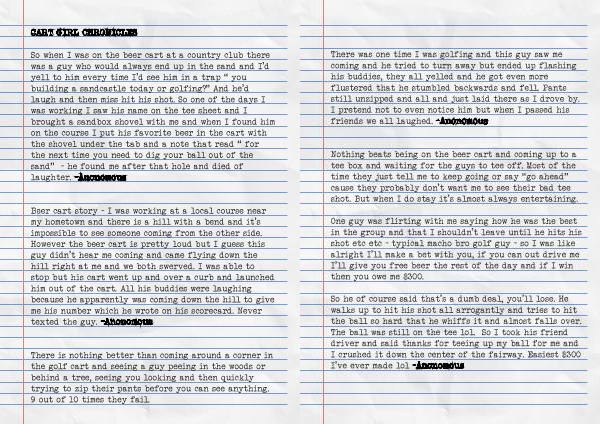 CART GIRL CHRONICLES
So when I was on the beer cart at a country club there
was a guy who would always end up in the sand and I'd
yell to him every time I'd see him in a trap " you
building a sandcastle today or golfing?" And he'd
laugh and then miss hit his shot. So one of the days I
was working I saw his name on the tee sheet and I
brought a sandbox shovel with me and when I found him
on the course I put his favorite beer in the cart with
the shovel under the tab and a note that read " for
the next time you need to dig your ball out of the
sand" - he found me after that hole and died of
laughter. -Anonomous
Beer cart story - I was working at a local course near
my hometown and there is a hill with a bend and it's
impossible to see someone coming from the other side.
However the beer cart is pretty loud but I guess this
guy didn't hear me coming and came flying down the
hill right at me and we both swerved. I was able to
stop but his cart went up and over a curb and launched
him out of the cart. All his buddies were laughing
because he apparently was coming down the hill to give
me his number which he wrote on his scorecard. Never
texted the guy. -Anonomous
There is nothing better than coming around a corner in
the golf cart and seeing a guy peeing in the woods or
behind a tree, seeing you looking and then quickly
trying to zip their pants before you can see anything.
9 out of 10 times they fail.
There was one time I was golfing and this guy saw me
coming and he tried to turn away but ended up flashing
his buddies, they all yelled and he got even more
flustered that he stumbled backwards and fell. Pants
still unzipped and all and just laid there as I drove by.
I pretend not to even notice him but when I passed his
friends we all laughed. -Anonomous
Nothing beats being on the beer cart and coming up to a
tee box and waiting for the guys to tee off. Most of the
time they just tell me to keep going or say "go ahead"
cause they probably don't want me to see their bad tee
shot. But when I do stay it's almost always entertaining.
One guy was flirting with me saying how he was the best
in the group and that I shouldn't leave until he hits his
shot etc etc - typical macho bro golf guy - so I was like
alright I'll make a bet with you, if you can out drive me
I'll give you free beer the rest of the day and if I win
then you owe me $300.
So he of course said that's a dumb deal, you'll lose. He
walks up to hit his shot all arrogantly and tries to hit
the ball so hard that he whiffs it and almost falls over.
The ball was still on the tee lol. So I took his friend
driver and said thanks for teeing up my ball for me and
I crushed it down the center of the fairway. Easiest $300
I've ever made lol -Anonomous